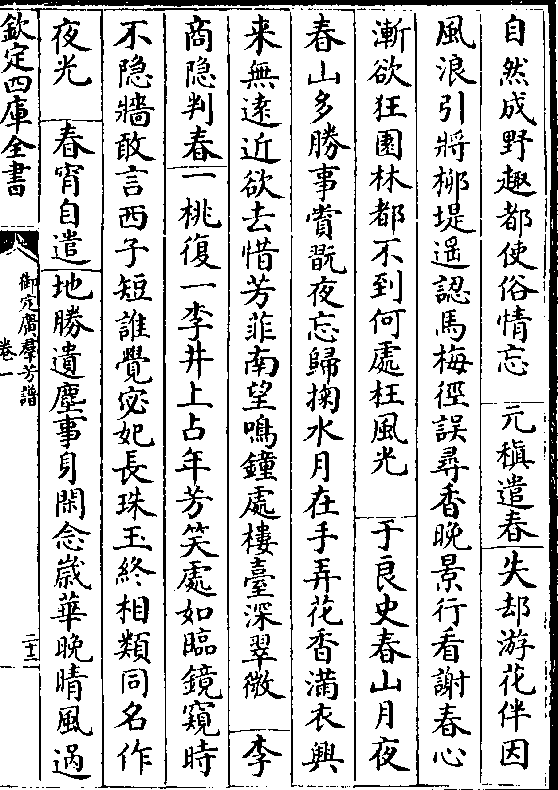 自然成野趣都使俗情忘　元稹遣春失却游花伴因
風浪引將柳堤遥認馬梅徑誤尋香晚景行看謝春心
漸欲狂園林都不到何處枉風光　于良史春山月夜
春山多勝事賞翫夜忘歸掬水月在手弄花香滿衣興
来無逺近欲去惜芳菲南望鳴鐘處樓臺深翠微　李
商隐判春一桃復一李井上占年芳笑處如臨鏡窺時
不隐牆敢言西子短誰覺宓妃長珠玉終相類同名作
夜光　春宵自遣地勝遺塵事身閑念歲華晚晴風過
欽定四庫全書
御定廣羣芳譜
卷一
二十三